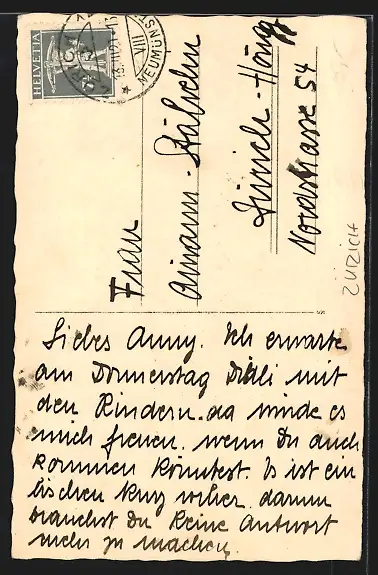 HELVETIA
10
VIII
NEUMÜNS
Frau
Amann-Stähelin
Zürich-Höngg
Nordstrasse 54
ZÜRICH
Liebes Anny. Ich erwarte
am Donnerstag Dilli mit
den Kindern. da würde es
mich freuen. wenn Du auch
kommen könntest. Es ist ein
bischen kurz vorher. darum
brauchst Du keine Antwort
mehr zu machen.